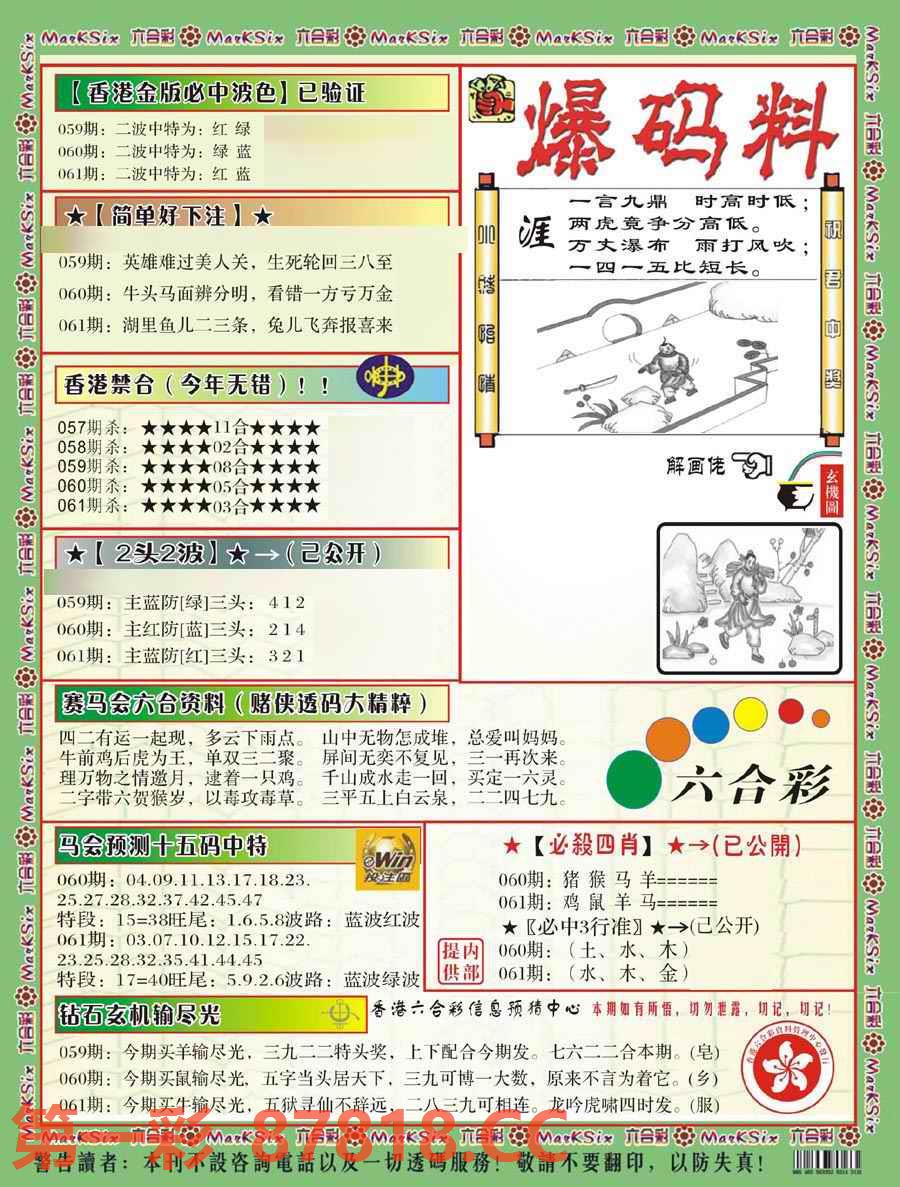 MarKSix 六合彩 MarKSix 六合彩 MarKSix 六合彩 MarKSix 六合彩 MarKSix 六合彩
【香港金版必中波色】已验证
059期：二波中特为：红 绿
060期：二波中特为：绿 蓝
061期：二波中特为：红 蓝
★【简单好下注】★
059期：英雄难过美人关，生死轮回三八至
060期：牛头马面辨分明，看错一方亏万金
061期：湖里鱼儿二三条，兔儿飞奔报喜来
香港禁合（今年无错）！！
057期杀：★★★★11合★★★★
058期杀：★★★★02合★★★★
059期杀：★★★★08合★★★★
060期杀：★★★★05合★★★★
061期杀：★★★★03合★★★★
★【 2头2波】★→（已公开）
059期：主蓝防[绿]三头：4 1 2
060期：主红防[蓝]三头：2 1 4
061期：主蓝防[红]三头：3 2 1
爆码料
涯
一言九鼎　时高时低；
两虎竟争分高低。
万丈瀑布　雨打风吹；
一四一五比短长。
祝君中奖
解画佬
玄機圖
赛马会六合资料（赌侠透码大精粹）
四二有运一起现，多云下雨点。 山中无物怎成堆，总爱叫妈妈。
牛前鸡后虎为王，单双三二聚。 屏间无奕不复见，三一再次来。
理万物之情邀月，逮着一只鸡。 千山成水走一回，买定一六灵。
二字带六贺猴岁，以毒攻毒草。 三平五上白云泉，二二四七九。
六合彩
马会预测十五码中特
eWin
投注區
060期：04.09.11.13.17.18.23.
25.27.28.32.37.42.45.47
特段：15=38旺尾：1.6.5.8波路：蓝波红波
061期：03.07.10.12.15.17.22.
23.25.28.32.35.41.44.45
特段：17=40旺尾：5.9.2.6波路：蓝波绿波
★【必殺四肖】★→(已公開)
060期：猪 猴 马 羊======
061期：鸡 鼠 羊 马======
★〖必中3行准〗★→(已公开)
060期：（土、水、木）
061期：（水、木、金）
内部提供
钻石玄机输尽光
香港六合彩信息预猜中心 本期如有所悟，切勿泄露，切记，切记！
059期：今期买羊输尽光，三九二二特头奖，上下配合今期发。七六二二合本期。(皂)
060期：今期买鼠输尽光，五字当头居天下，三九可博一大数，原来不言为着它。(乡)
061期：今期买牛输尽光，五狱寻仙不辞远，二八三九可相连。龙吟虎啸四时发。(服)
第一彩 87818.CC
MarKSix 六合彩 MarKSix 六合彩 MarKSix 六合彩 MarKSix 六合彩 MarKSix 六合彩
警告讀者：本刊不設咨詢電話以及一切透碼服務！敬請不要翻印，以防失真！